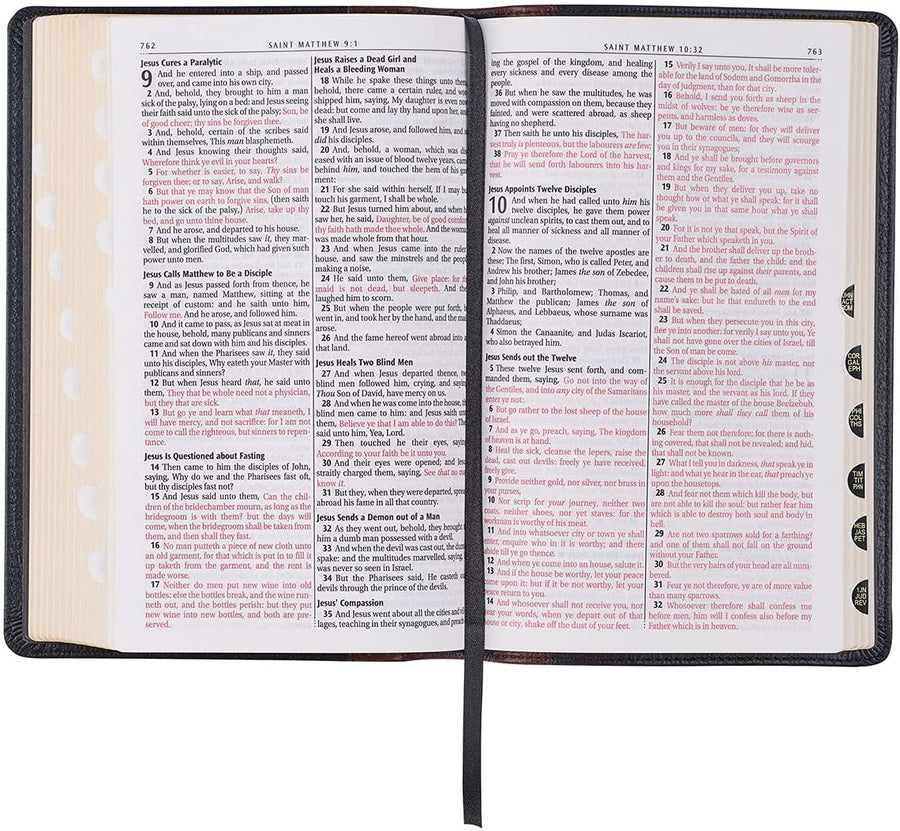 762
SAINT MATTHEW 9:1
Jesus Cures a Paralytic
9 And he entered into a ship, and passed
over, and came into his own city.
2 And, behold, they brought to him a man
sick of the palsy, lying on a bed: and Jesus seeing
their faith said unto the sick of the palsy; Son, be
of good cheer; thy sins be forgiven thee.
3 And, behold, certain of the scribes said
within themselves, This man blasphemeth.
4 And Jesus knowing their thoughts said,
Wherefore think ye evil in your hearts?
5 For whether is easier, to say, Thy sins be
forgiven thee; or to say, Arise, and walk?
6 But that ye may know that the Son of man
hath power on earth to forgive sins, (then saith
he to the sick of the palsy,) Arise, take up thy
bed, and go unto thine house.
7 And he arose, and departed to his house.
8 But when the multitudes saw it, they mar-
velled, and glorified God, which had given such
power unto men.
Jesus Calls Matthew to Be a Disciple
9 And as Jesus passed forth from thence, he
saw a man, named Matthew, sitting at the
receipt of custom: and he saith unto him,
Follow me. And he arose, and followed him.
10 And it came to pass, as Jesus sat at meat in
the house, behold, many publicans and sinners
came and sat down with him and his disciples.
11 And when the Pharisees saw it, they said
unto his disciples, Why eateth your Master with
publicans and sinners?
12 But when Jesus heard that, he said unto
them, They that be whole need not a physician,
but they that are sick.
13 But go ye and learn what that meaneth, I
will have mercy, and not sacrifice: for I am not
come to call the righteous, but sinners to repen-
tance.
Jesus Is Questioned about Fasting
14 Then came to him the disciples of John,
saying, Why do we and the Pharisees fast oft,
but thy disciples fast not?
15 And Jesus said unto them, Can the chil-
dren of the bridechamber mourn, as long as the
bridegroom is with them? but the days will
come, when the bridegroom shall be taken from
them, and then shall they fast.
16 No man putteth a piece of new cloth unto
an old garment, for that which is put in to fill it
up taketh from the garment, and the rent is
made worse.
17 Neither do men put new wine into old
bottles: else the bottles break, and the wine run-
neth out, and the bottles perish: but they put
new wine into new bottles, and both are pre-
served.
Jesus Raises a Dead Girl and
Heals a Bleeding Woman
18 While he spake these things unto them,
behold, there came a certain ruler, and wor-
shipped him, saying, My daughter is even now
dead: but come and lay thy hand upon her, and
she shall live.
19 And Jesus arose, and followed him, and so
did his disciples.
20 And, behold, a woman, which was dis-
eased with an issue of blood twelve years, came
behind him, and touched the hem of his gar-
ment:
21 For she said within herself, If I may but
touch his garment, I shall be whole.
22 But Jesus turned him about, and when he
saw her, he said, Daughter, be of good comfort;
thy faith hath made thee whole. And the woman
was made whole from that hour.
23 And when Jesus came into the ruler's
house, and saw the minstrels and the people
making a noise,
24 He said unto them, Give place: for the
maid is not dead, but sleepeth. And they
laughed him to scorn.
25 But when the people were put forth, he
went in, and took her by the hand, and the maid
arose.
26 And the fame hereof went abroad into all
that land.
Jesus Heals Two Blind Men
27 And when Jesus departed thence, two
blind men followed him, crying, and saying,
Thou Son of David, have mercy on us.
28 And when he was come into the house, the
blind men came to him: and Jesus saith unto
them, Believe ye that I am able to do this? They
said unto him, Yea, Lord.
29 Then touched he their eyes, saying,
According to your faith be it unto you.
30 And their eyes were opened; and Jesus
straitly charged them, saying, See that no man
know it.
31 But they, when they were departed, spread
abroad his fame in all that country.
Jesus Sends a Demon out of a Man
32 As they went out, behold, they brought to
him a dumb man possessed with a devil.
33 And when the devil was cast out, the dumb
spake: and the multitudes marvelled, saying, It
was never so seen in Israel.
34 But the Pharisees said, He casteth out
devils through the prince of the devils.
Jesus' Compassion
35 And Jesus went about all the cities and vil-
lages, teaching in their synagogues, and preach-
SAINT MATTHEW 10:32
763
ing the gospel of the kingdom, and healing
every sickness and every disease among the
people.
36 But when he saw the multitudes, he was
moved with compassion on them, because they
fainted, and were scattered abroad, as sheep
having no shepherd.
37 Then saith he unto his disciples, The har-
vest truly is plenteous, but the labourers are few;
38 Pray ye therefore the Lord of the harvest,
that he will send forth labourers into his har-
vest.
Jesus Appoints Twelve Disciples
10 And when he had called unto him his
twelve disciples, he gave them power
against unclean spirits, to cast them out, and to
heal all manner of sickness and all manner of
disease.
2 Now the names of the twelve apostles are
these; The first, Simon, who is called Peter, and
Andrew his brother; James the son of Zebedee,
and John his brother;
3 Philip, and Bartholomew; Thomas, and
Matthew the publican; James the son of
Alphaeus, and Lebbaeus, whose surname was
Thaddaeus;
4 Simon the Canaanite, and Judas Iscariot,
who also betrayed him.
Jesus Sends out the Twelve
5 These twelve Jesus sent forth, and com-
manded them, saying, Go not into the way of
the Gentiles, and into any city of the Samaritans
enter ye not:
6 But go rather to the lost sheep of the house
of Israel.
7 And as ye go, preach, saying, The kingdom
of heaven is at hand.
8 Heal the sick, cleanse the lepers, raise the
dead, cast out devils: freely ye have received,
freely give.
9 Provide neither gold, nor silver, nor brass in
your purses,
10 Nor scrip for your journey, neither two
coats, neither shoes, nor yet staves: for the
workman is worthy of his meat.
11 And into whatsoever city or town ye shall
enter, enquire who in it is worthy; and there
abide till ye go thence.
12 And when ye come into an house, salute it.
13 And if the house be worthy, let your peace
come upon it: but if it be not worthy, let your
peace return to you.
14 And whosoever shall not receive you, nor
hear your words, when ye depart out of that
house or city, shake off the dust of your feet.
15 Verily I say unto you, It shall be more toler-
able for the land of Sodom and Gomorrha in the
day of judgment, than for that city.
16 Behold, I send you forth as sheep in the
midst of wolves: be ye therefore wise as ser-
pents, and harmless as doves.
17 But beware of men: for they will deliver
you up to the councils, and they will scourge
you in their synagogues;
18 And ye shall be brought before governors
and kings for my sake, for a testimony against
them and the Gentiles.
19 But when they deliver you up, take no
thought how or what ye shall speak: for it shall
be given you in that same hour what ye shall
speak.
20 For it is not ye that speak, but the Spirit of
your Father which speaketh in you.
21 And the brother shall deliver up the broth-
er to death, and the father the child: and the
children shall rise up against their parents, and
cause them to be put to death.
22 And ye shall be hated of all men for my
name's sake: but he that endureth to the end
shall be saved.
23 But when they persecute you in this city,
flee ye into another: for verily I say unto you, Ye
shall not have gone over the cities of Israel, till
the Son of man be come.
24 The disciple is not above his master, nor
the servant above his lord.
25 It is enough for the disciple that he be as
his master, and the servant as his lord. If they
have called the master of the house Beelzebub,
how much more shall they call them of his
household?
26 Fear them not therefore: for there is noth-
ing covered, that shall not be revealed; and hid,
that shall not be known.
27 What I tell you in darkness, that speak ye in
light: and what ye hear in the ear, that preach ye
upon the housetops.
28 And fear not them which kill the body, but
are not able to kill the soul: but rather fear him
which is able to destroy both soul and body in
hell.
29 Are not two sparrows sold for a farthing?
and one of them shall not fall on the ground
without your Father.
30 But the very hairs of your head are all num-
bered.
31 Fear ye not therefore, ye are of more value
than many sparrows.
32 Whosoever therefore shall confess me
before men, him will I confess also before my
Father which is in heaven.
ACT
COR
GAL
EPH
PHI
COL
THS
TIM
TIT
PHN
HEB
JAS
PET
1JN
JUD
REV